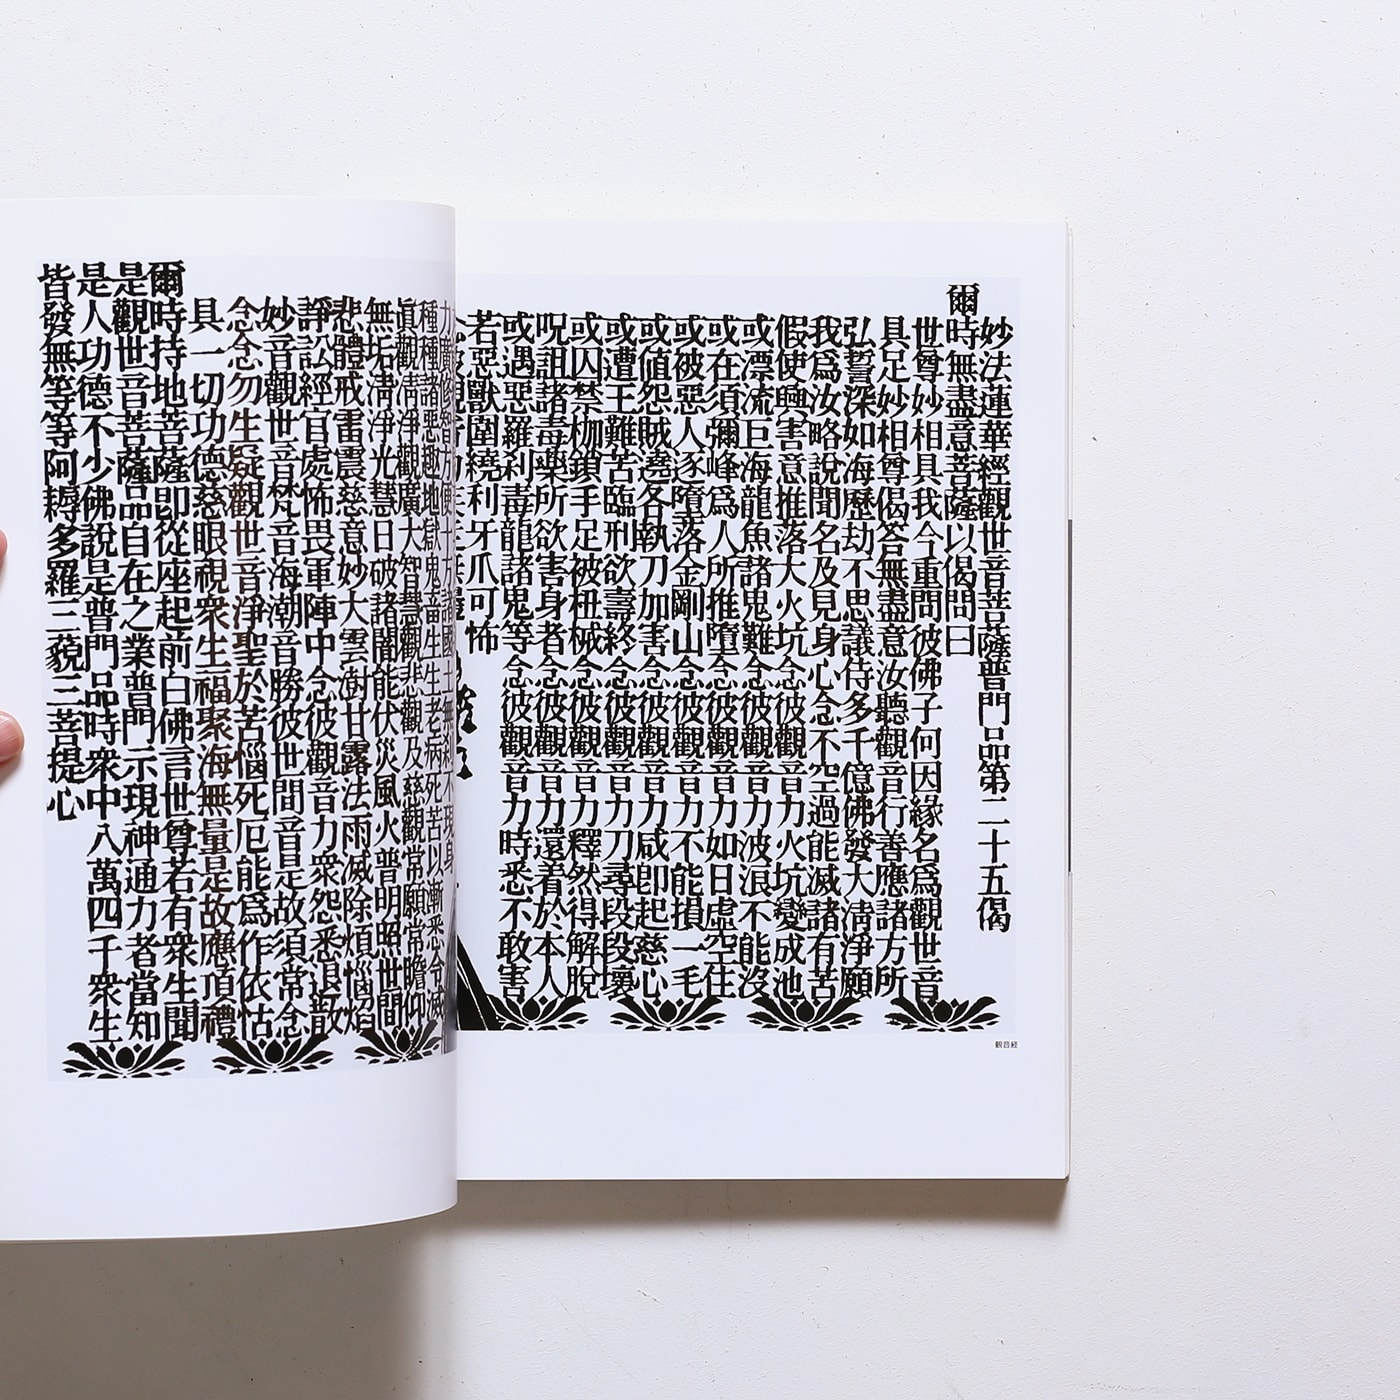 妙法蓮華經觀世音菩薩普門品第二十五偈
爾時無盡意菩薩以偈問曰
世尊妙相具我今重問彼佛子何因緣名爲觀世音
具足妙相尊偈答無盡意汝聽觀音行善應諸方所
弘誓深如海歷劫不思議侍多千億佛發大淸淨願
我爲汝略說聞名及見身心念不空過能滅諸有苦
假使興害意推落大火坑念彼觀音力火坑變成池
或漂流巨海龍魚諸鬼難念彼觀音力波浪不能沒
或在須彌峰爲人所推墮念彼觀音力如日虛空住
或被惡人逐墮落金剛山念彼觀音力不能損一毛
或値怨賊遶各執刀加害念彼觀音力咸卽起慈心
或遭王難苦臨刑欲壽終念彼觀音力刀尋段段壞
或囚禁枷鎖手足被杻械念彼觀音力釋然得解脫
呪詛諸毒藥所欲害身者念彼觀音力還着於本人
或遇惡羅刹毒龍諸鬼等念彼觀音力時悉不敢害
若惡獸圍繞利牙爪可怖
力廣修智方便十方諸國土無刹不現身
種種諸惡趣地獄鬼畜生生老病死苦以漸悉令滅
眞觀淸淨觀廣大智慧觀悲觀及慈觀常願常瞻仰
無垢淸淨光慧日破諸闇能伏災風火普明照世間
悲體戒雷震慈意妙大雲澍甘露法雨滅除煩惱焰
諍訟經官處怖畏軍陣中念彼觀音力衆怨悉退散
妙音觀世音梵音海潮音勝彼世間音是故須常念
念念勿生疑觀世音淨聖於苦惱死厄能爲作依怙
具一切功德慈眼視衆生福聚海無量是故應頂禮
爾時持地菩薩卽從座起前白佛言世尊若有衆生聞
是觀世音菩薩品自在之業普門示現神通力者當知
是人功德不少佛說是普門品時衆中八萬四千衆生
皆發無等等阿耨多羅三藐三菩提心
観音経